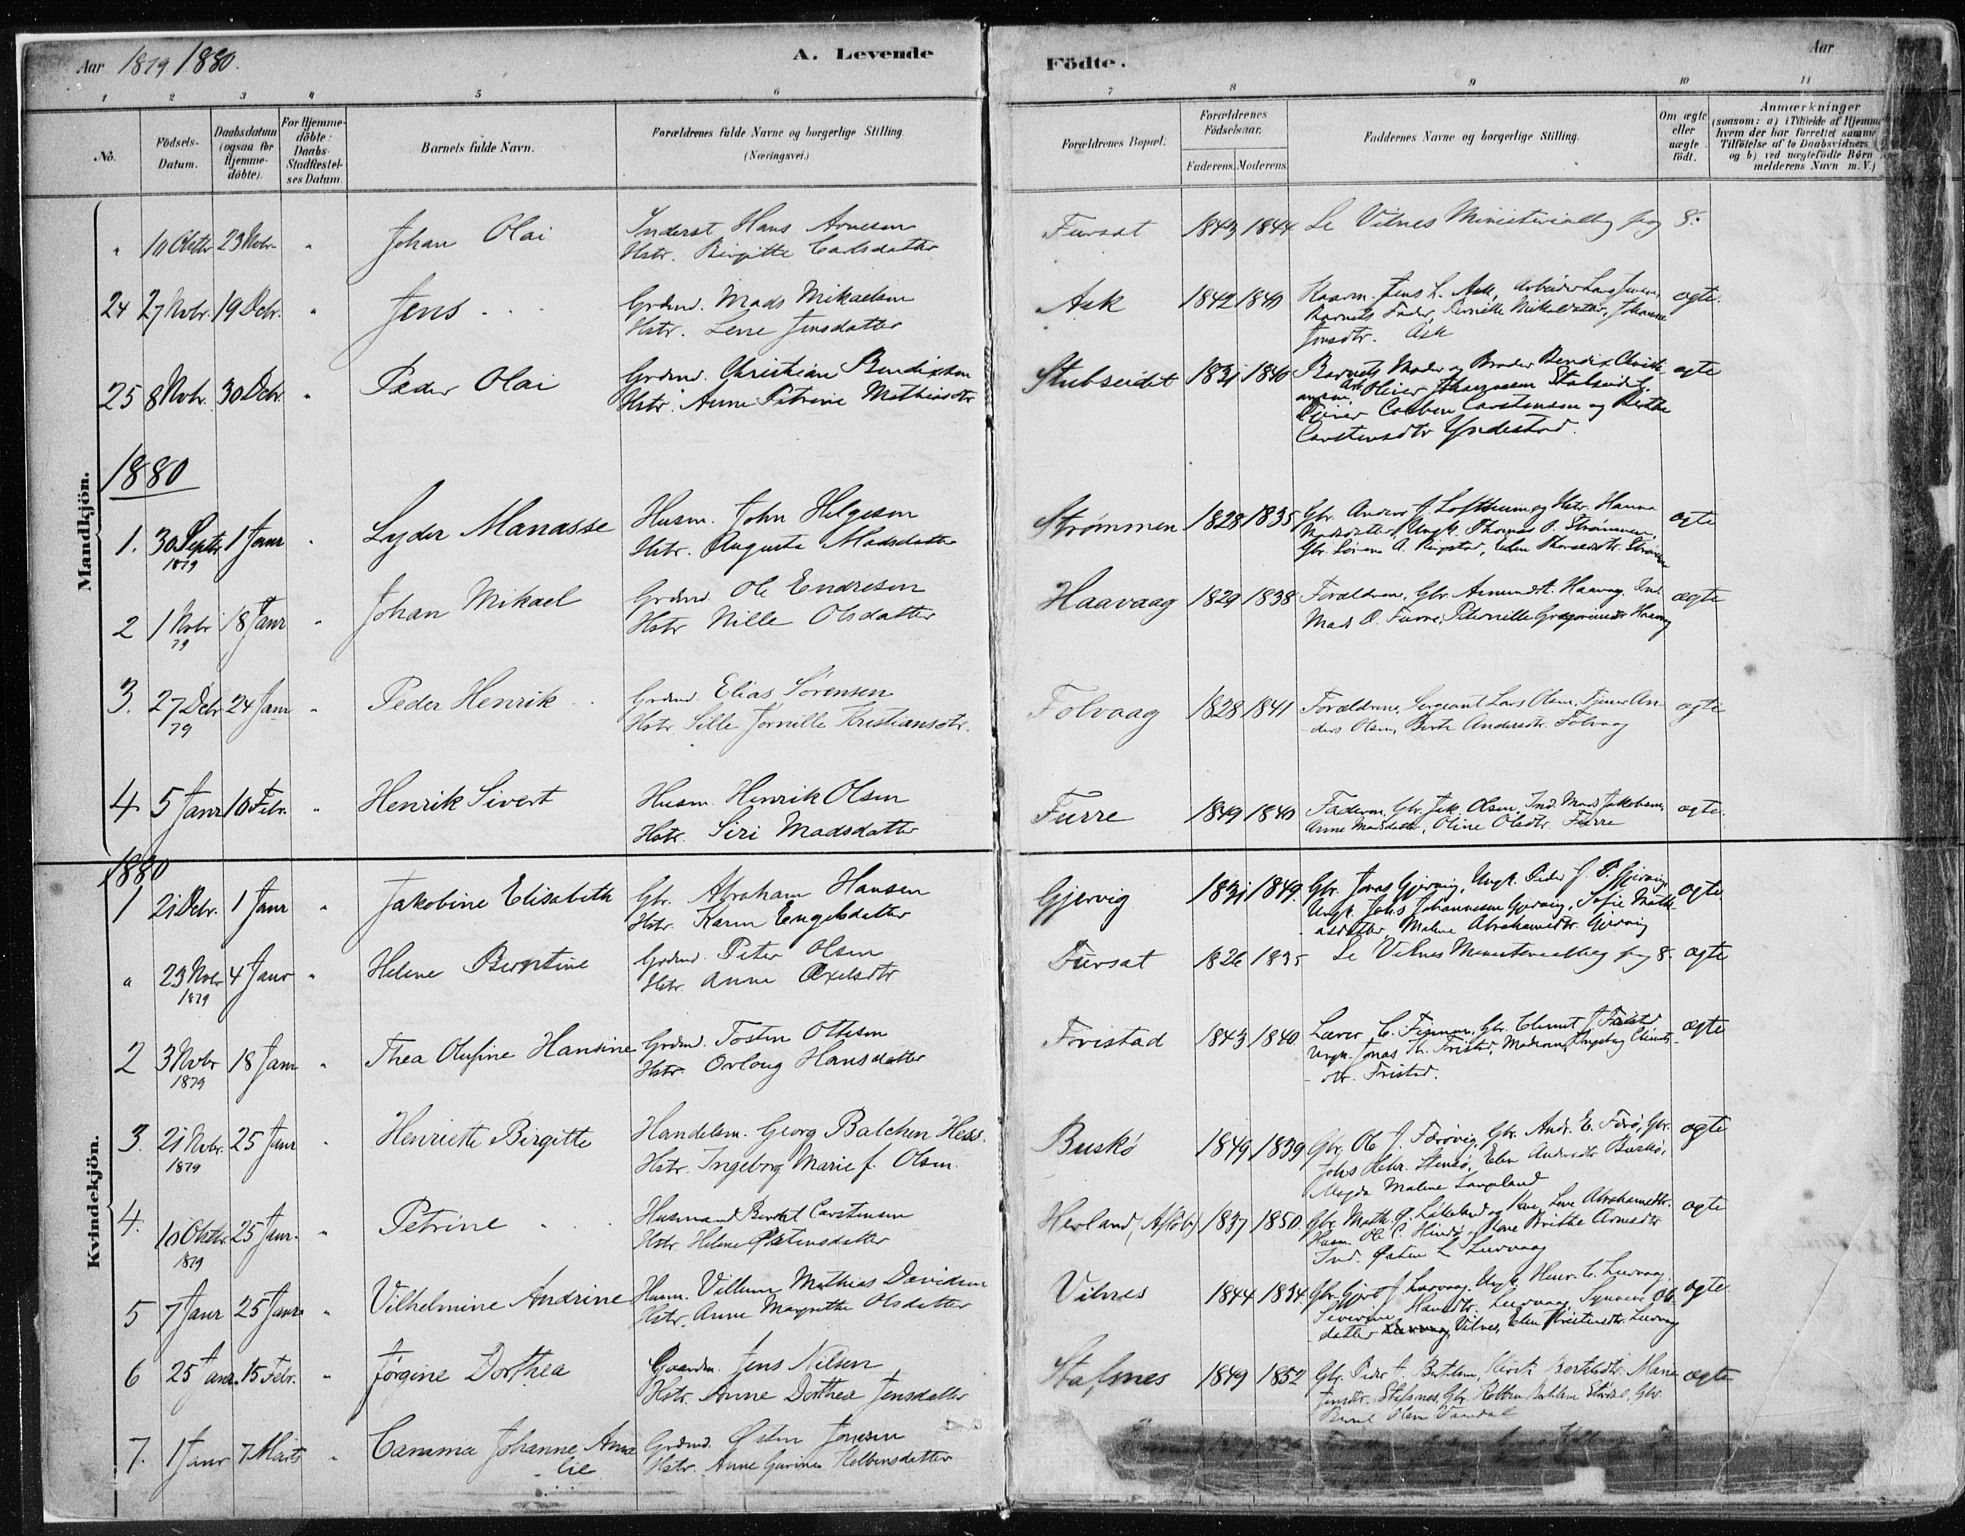 Aar 1879 1880. A. Levende Födte. Aar
1 2 3 4 5 6 7 8 9 10 11
No. Födsels-Datum. Daabsdatum (ogsaa for Hjemme-döbte). For Hjemme-döbte: Daabs-Stadfæstel-ses Datum. Barnets fulde Navn. Forældrenes fulde Navne og borgerlige Stilling. (Næringsvei.) Forældrenes Bopæl. Forældrenes Födselsaar. Faderens. Moderens. Faddernes Navne og borgerlige Stilling. Om ægte eller uægte födt. Anmærkninger
(saasom: a) i Tilfælde af Hjemme
hvem der har forrettet samme
Tilföielse af to Daabsvidners
og b) ved uægtefödte Börn
melderens Navn m.V.)
Mandkjön.
" 10 Oktbr 23 Novbr. " Johan Olai Inderst Hans Arnesen
Hstr. Birgitte Carlsdatter Fursat 1843 1844 Se Vilnes Ministerialbog pag 8.
24 27 Novbr. 19 Debr. " Jens Grdmd. Mads Mikaelsen
Hstr. Lene Jensdatter Ask 1842 1840 Kaarm. Jens L. Ask, Arbeider Lars Jensen,
Barnets Fader, Pernille Mikelsdatter, Johanne
Jensdtr. Ask ægte.
25 8 Novbr. 30 Debr. " Peder Olai Grdmd. Christian Bendixsen
Hstr. Anne Petrine Mathiasdtr Stubseidet 1831 1840 Barnets Moder og Broder Bendix Christi-
ansen, Oliver Johannesen Stubseid,
Carsten Carstensen og Berthe
Carstensdtr Yndestad. ægte
1880
1. 30 Septbr 1879 1 Janr " Lyder Manasse Husm. John Helgesen
Hstr. Augusta Madsdatter Strømmen 1828 1835 Gbr. Anders J. Loftheim og Hstr. Hanna
Madsdatter, Ungk. Thomas O. Strømmen,
Gbr. Søren A. Ringstad, Elen Thomasdtr. Strømmen ægte
2 1 Novbr 79 18 Janr " Johan Mikael Grdmd. Ole Endresen
Hstr Nille Olsdatter Haavaag 1829 1838 Forældrene, Gbr. Asmund A. Haavaag, Ind.
Mads O. Furre, Pernille Gregoriusdtr Haavaag ægte
3. 27 Debr 79 24 Janr " Peder Henrik Grdmd. Elias Sørensen
Hstr. Sille Jørnille Kristiansdtr. Folvaag 1828 1841 Forældrene, Sergeant Lars Olsen, Tjener An-
ders Olsen, Berte Andersdtr. Folvaag ægte
4 5 Janr 10 Febr. " Henrik Sivert Husm. Henrik Olsen
Hstr. Siri Madsdatter Furre 1849 1840 Faderen, Gbr. Jak. Olsen, Ind. Mads Jakobsen,
Anne Madsdatter, Oline Olsdtr. Furre ægte.
Kvindekjön.
1880
1 21 Debr. 1 Janr " Jakobine Elisabeth Gbr. Abraham Hansen
Hstr. Karen Engelsdatter Gjervig 1831 1849. Gbr. Jonas Gjervig, Ungk. Peder J. P. Gjervig,
Ungk. Johs Johannesen Gjervig, Sofie Math-
iasdatter, Malene Abrahamsdtr. Gjervig ægte.
" 23 Novbr 1879 4 Janr " Helene Berntine Grdmd. Peter Olsen
Hstr. Anne Axelsdtr Fursat 1826 1835 Se Vilnes Ministerialbog pag 8. ægte
2 3 Novbr 1879 18 Janr " Thea Olufine Hansine Grdmd. Tosten Ottesen
Hstr. Orloug Hansdatter Fristad 1843 1840 Lærer C. Finnan, Gbr. Clemet J. Fristad
Ungk. Jonas Th. Fristad, Moderen, Ingeborg Clemets-
dtr. Fristad. ægte
3. 21 Novbr. 1879 25 Janr " Henriette Birgitte Handelsm. Georg Balchen Hess.
Hstr. Ingeborg Marie f. Olsen. Buskö 1849 1839 Gbr. Ole J. Færøvig, Gbr. Andr. E. Færø, Gbr.
Johs Hebr. Stensø, Elen Andersdtr Buskø,
Magda Malene Langeland ægte
4. 10 Oktbr. 1879 25 Janr. " Petrine Husmand Berent Carstensen
Hstr. Helene Østensdatter Herland, Askv. 1837 1850. Gbr. Math. J. Likeland og Kone Lene Abrahamsdtr.
Husm. Ole C. Hindø, Kone Brithe Arnesdtr
Ind. Østen L. Lervaag ægte
5 7 Janr 25 Janr " Vilhelmine Andrine Husm. Villum Mathias Davidsen
Hstr. Anne Magrethe Olsdatter Vilnes 1844 1834. Gbr. Gjert J. Lervaag, Ungk. Henr. C. Lervaag,
Severine Hansdtr. Lervaag, Synneve Ols-
datter Vilnes, Elen Kristensdtr. Lervaag ægte
6 25 Janr. 15 Febr. " Jørgine Dorthea Gaardm. Jens Nilsen
Hstr. Anne Dorthea Jensdatter Stafsnes 1849 1852 Gbr. Peder A. Bertelsen, Kirsti Bertelsdtr. Marie
Jensdtr. Stafsnes, Gbr.
Olsen ægte
7. 1 Janr 7 Marts " Camma Johanne Ama-
lie Grdmd. Østen Jonesen
Hstr. Anne Gurine Helbensdatter